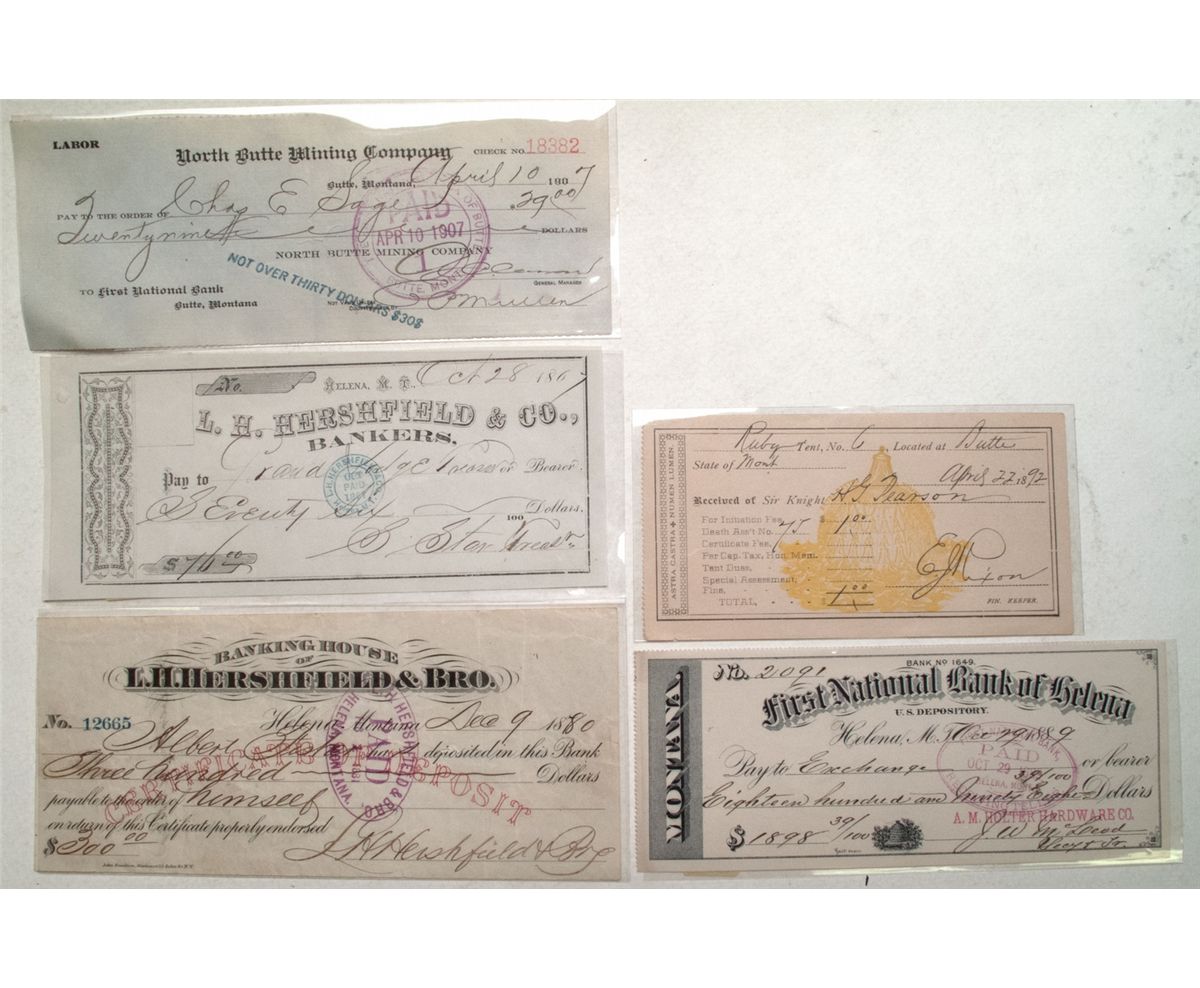 LABOR
North Butte Mining Company
CHECK NO. 18382
Butte, Montana, April 10 1907
PAY TO THE ORDER OF Chas E Sage $29.00
Twentynine DOLLARS
NORTH BUTTE MINING COMPANY
GENERAL MANAGER
TO First National Bank
Butte, Montana
NOT OVER THIRTY DOLLARS $30$
PAID
APR 10 1907
1
BUTTE, MONT.
No.
HELENA, M. T., Oct 28 186
L. H. HERSHFIELD & CO.,
BANKERS.
Pay to Grand or Bearer
Seventy Six 100 Dollars.
$76.00
PAID
BANKING HOUSE
OF
L.H. HERSHFIELD & BRO.
No. 12665 Helena, Montana Dec 9 1880
Albert has deposited in this Bank
Three hundred Dollars
payable to the order of himself
on return of this Certificate properly endorsed
$300.00 L.H. Hershfield & Bro
CERTIFICATE OF DEPOSIT
L.H. HERSHFIELD & BRO.
PAID
HELENA MONTANA
Ruby Tent, No. 6 Located at Butte
State of Mont
April 22 1892
Received of Sir Knight H G Pearson
ASTRA CASTRA NUMEN LUMEN.
For Initiation Fee,
Death Ass't No. 77 $1.00
Certificate Fee,
Per Cap. Tax, Hon. Mem.
Tent Dues,
Special Assessment,
Fine,
TOTAL, $1.00
E J Nixon
FIN. KEEPER.
MONTANA
No. 2091 BANK NO 1649.
First National Bank of Helena
U.S. DEPOSITORY.
Helena, M.T. Oct 29 1889
Pay to Exchange or bearer
Eighteen hundred and Ninety Eight 39/100 Dollars
A. M. HOLTER HARDWARE CO.
$1898 39/100
PAID
OCT 29
HELENA, MONT.